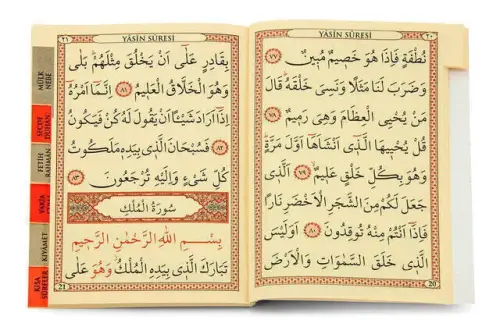 YÂSİN SÛRESİ
٢٠
نُطْفَةٍ فَاِذَا هُوَ خَصٖيمٌ مُبٖينٌ ﴿٧٧﴾
وَضَرَبَ لَنَا مَثَلًا وَنَسِىَ خَلْقَهُ قَالَ
مَنْ يُحْيِى الْعِظَامَ وَهِىَ رَمٖيمٌ ﴿٧٨﴾
قُلْ يُحْيٖيهَا الَّذٖٓى اَنْشَاَهَٓا اَوَّلَ مَرَّةٍ
وَهُوَ بِكُلِّ خَلْقٍ عَلٖيمٌ ﴿٧٩﴾ اَلَّذٖى
جَعَلَ لَكُمْ مِنَ الشَّجَرِ الْاَخْضَرِ نَارًا
فَاِذَٓا اَنْتُمْ مِنْهُ تُوقِدُونَ ﴿٨٠﴾ اَوَلَيْسَ
الَّذٖى خَلَقَ السَّمٰوَاتِ وَالْاَرْضَ
20
YÂSİN SÛRESİ
٢١
بِقَادِرٍ عَلٰٓى اَنْ يَخْلُقَ مِثْلَهُمْ بَلٰى
وَهُوَ الْخَلَّاقُ الْعَلٖيمُ ﴿٨١﴾ اِنَّمَٓا اَمْرُهُٓ
اِذَٓا اَرَادَ شَيْـًٔا اَنْ يَقُولَ لَهُ كُنْ فَيَكُونُ
﴿٨٢﴾ فَسُبْحَانَ الَّذٖى بِيَدِهٖ مَلَكُوتُ
كُلِّ شَیْءٍ وَاِلَيْهِ تُرْجَعُونَ ﴿٨٣﴾
سُورَةُ الْمُلْكِ
بِسْمِ اللّٰهِ الرَّحْمٰنِ الرَّحٖيمِ
تَبَارَكَ الَّذٖى بِيَدِهِ الْمُلْكُ وَهُوَ عَلٰى
21
MÜLK
NEBE
SECDE
DUHAN
FETİH
RAHMAN
VAKIA
KIYAMET
KISA
SURELER